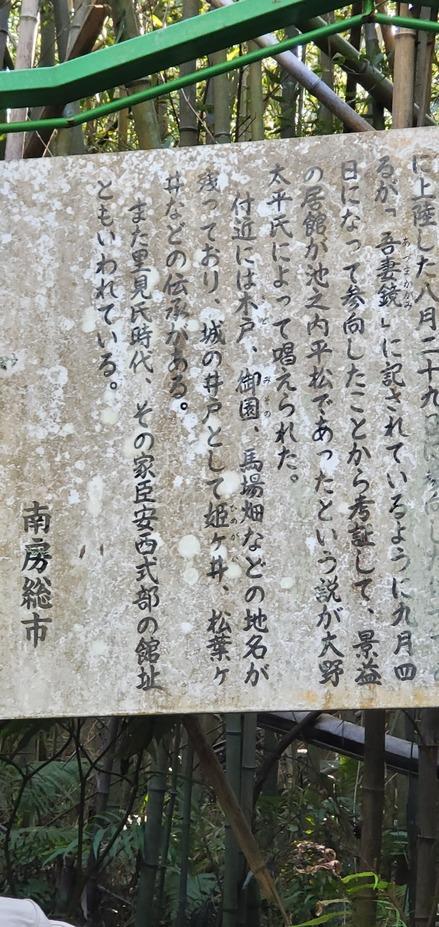 に上陸した八月二十九日
るが「吾妻鏡」に記されているように九月四
日になって参向したことから考証して、景益
の居館が池之内平松であったという説が大野
太平氏によって唱えられた。
付近には木戸、御園、馬場畑などの地名が
残っており、城の井戸として姫ヶ井、松葉ヶ
井などの伝承がある。
また里見氏時代、その家臣安西式部の館址
ともいわれている。
南房総市